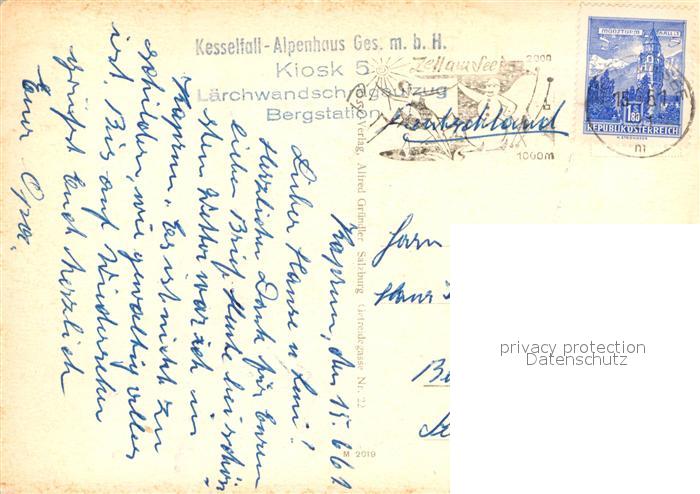 Kesselfall-Alpenhaus Ges. m. b. H.
Kiosk 5
Lärchwandschrägaufzug
Bergstation
Zell am See
2000
1000m
MÜNZTURM HALL I/T
1.80
REPUBLIK ÖSTERREICH
Deutschland
Kaprun, den 15.6.61
Lieber Hansi u. Leni!
Herzlichen Dank für Euren
lieben Brief. Heute bei schön-
sten Wetter war ich in
Kaprun. Es ist nicht zu
schildern, wie gewaltig alles
ist. Bis auf Wiedersehen
grüßt Euch herzlich
Euer Opa.
Verlag, Alfred Gründler Salzburg, Getreidegasse Nr. 22
M 2019
Herrn
privacy protection
Datenschutz